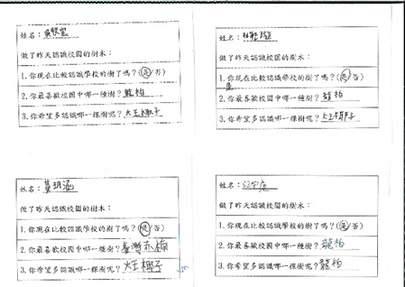 姓名：
做了昨天認識校園的樹木：
1.你現在比較認識學校的樹了嗎？(是/否)
2.你最喜歡校園中哪一種樹？龍柏
3.你希望多認識哪一棵樹呢？大王椰子
姓名：
做了昨天認識校園的樹木：
1.你現在比較認識學校的樹了嗎？(是/否)
2.你最喜歡校園中哪一種樹？龍柏
3.你希望多認識哪一棵樹呢？大王椰子
姓名：
做了昨天認識校園的樹木：
1.你現在比較認識學校的樹了嗎？(是/否)
2.你最喜歡校園中哪一種樹？臺灣
3.你希望多認識哪一棵樹呢？大王椰子
姓名：
做了昨天認識校園的樹木：
1.你現在比較認識學校的樹了嗎？(是/否)
2.你最喜歡校園中哪一種樹？龍柏
3.你希望多認識哪一棵樹呢？龍柏